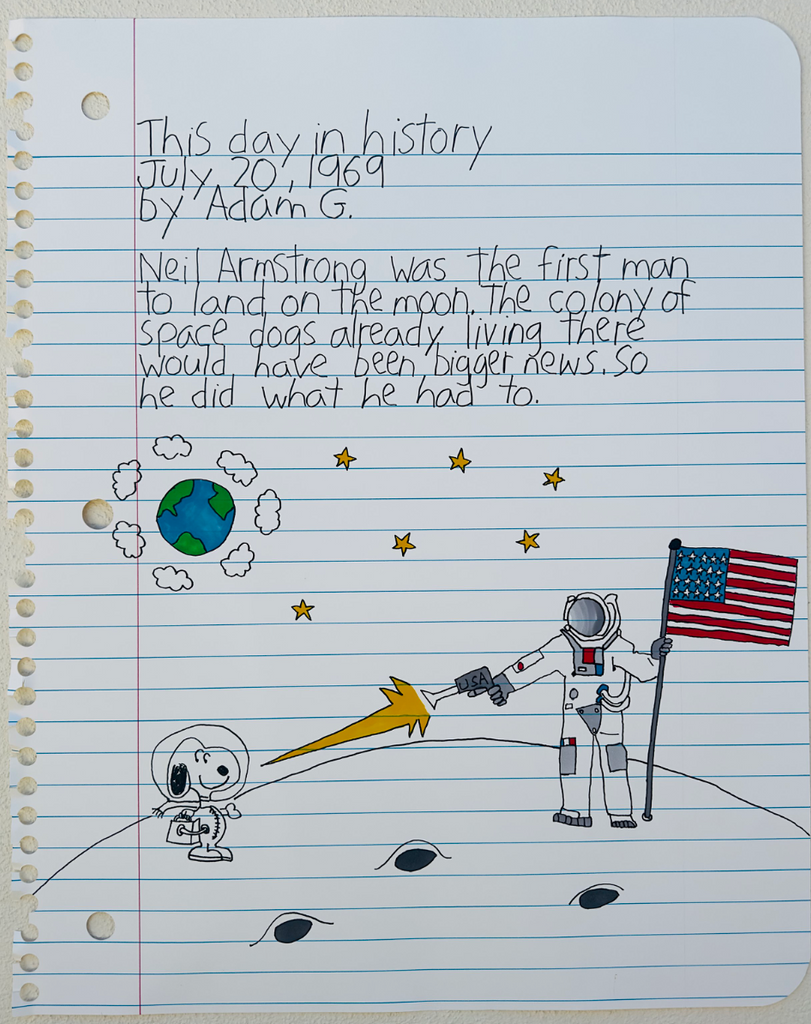 This day in history
July 20, 1969
by Adam G.
Neil Armstrong was the first man
to land on the moon. The colony of
space dogs already living there
would have been bigger news. So
he did what he had to.
USA